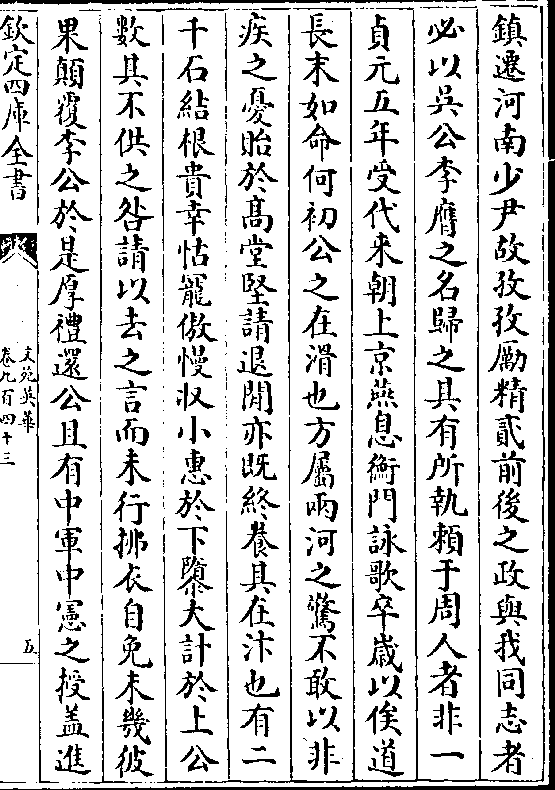 鎮遷河南少尹故孜孜勵精貳前後之政與我同志者
必以吳公李膺之名歸之具有所執賴于周人者非一
貞元五年受代来朝上京燕息衡門詠歌卒歲以俟道
長末如命何初公之在滑也方屬兩河之驚不敢以非
疾之憂貽於高堂堅請退閒亦既終養具在汴也有二
千石結根貴幸怙寵傲慢収小惠於下隳大計於上公
數具不供之咎請以去之言而未行拂衣自免未幾彼
果顛覆李公於是厚禮還公且有中軍中憲之授盖進
欽定四庫全書
文苑英華
卷九百四十三
五